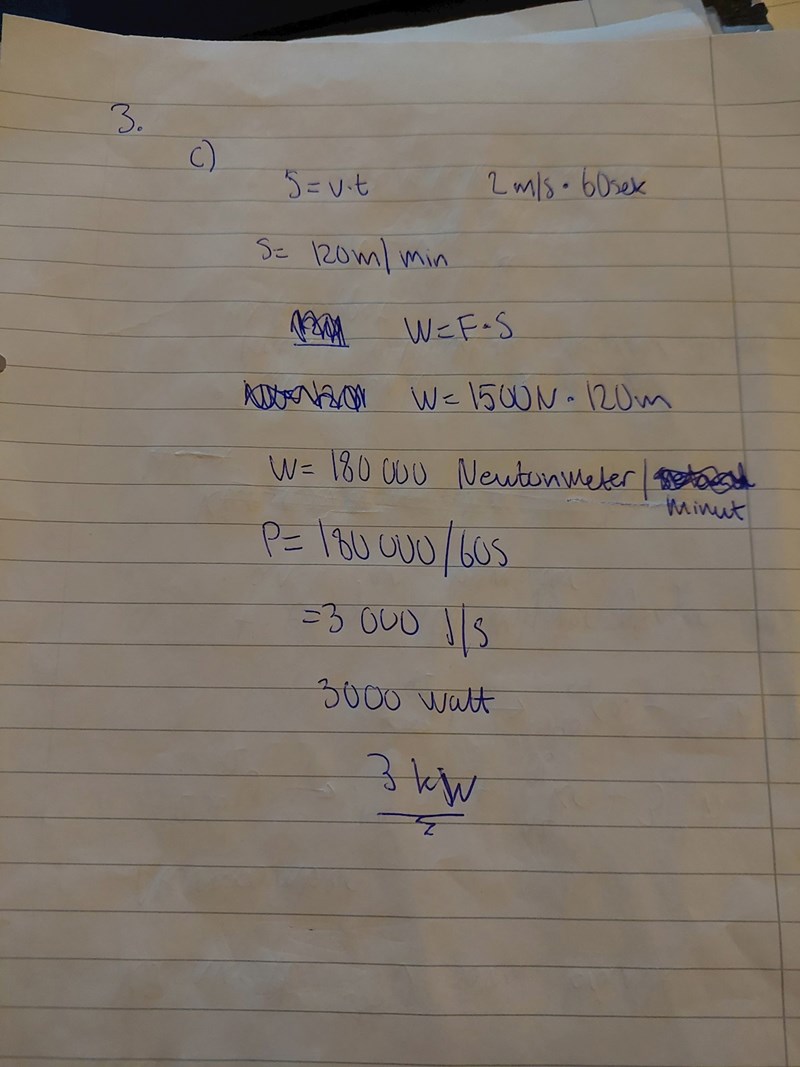 3.
c)
S=v·t 2m/s·60sek
S= 120m/min
W=F·S
W=1500N·120m
W= 180 000 Newtonmeter/
Minut
P= 180 000/60s
=3 000 J/s
3000 watt
3 kW